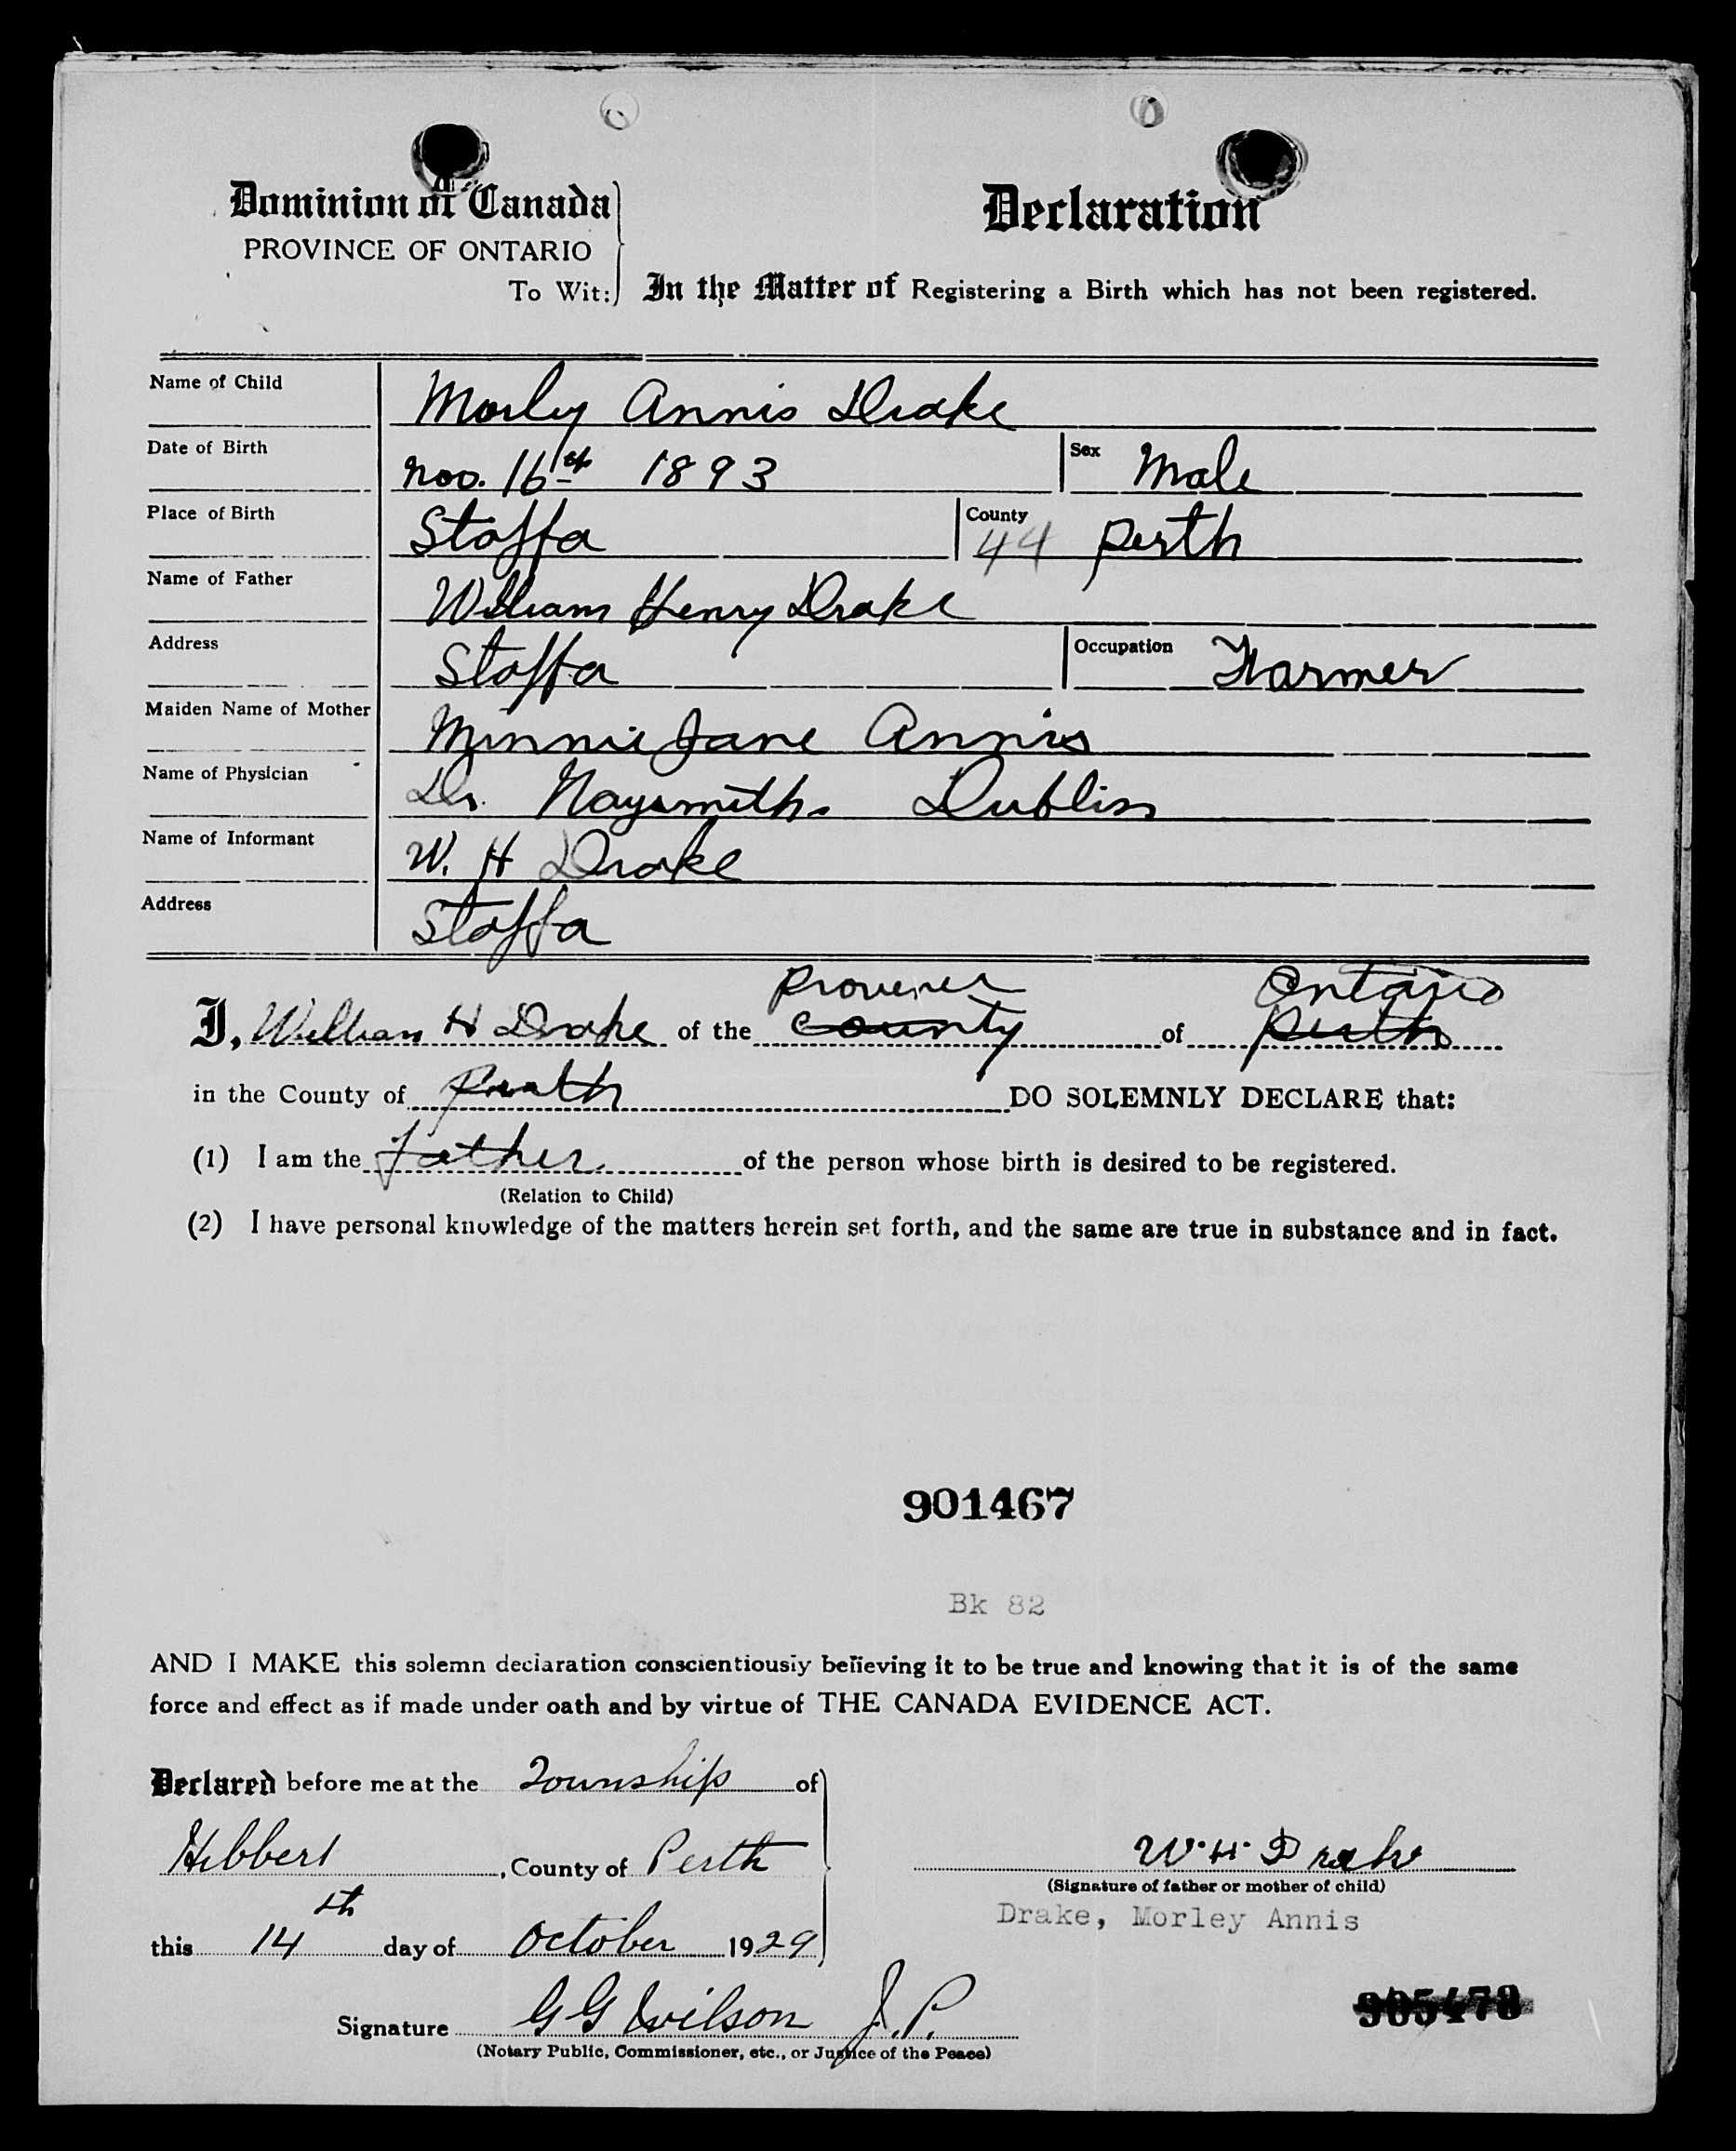 Dominion of Canada
PROVINCE OF ONTARIO
To Wit:
Declaration
In the Matter of Registering a Birth which has not been registered.
Name of Child Morley Annis Drake
Date of Birth Nov. 16th 1893 Sex Male
Place of Birth Staffa County 44 Perth
Name of Father William Henry Drake
Address Staffa Occupation Farmer
Maiden Name of Mother Minnie Jane Annis
Name of Physician Dr. Naysmith Dublin
Name of Informant W. H Drake
Address Staffa
Province Ontario
I, William H Drake of the County of Perth
in the County of Perth DO SOLEMNLY DECLARE that:
(1) I am the father of the person whose birth is desired to be registered.
(Relation to Child)
(2) I have personal knowledge of the matters herein set forth, and the same are true in substance and in fact.
901467
Bk 82
AND I MAKE this solemn declaration conscientiously believing it to be true and knowing that it is of the same
force and effect as if made under oath and by virtue of THE CANADA EVIDENCE ACT.
Declared before me at the Township of
Hibbert, County of Perth
this 14th day of October 1929
W. H. Drake
(Signature of father or mother of child)
Drake, Morley Annis
Signature G G Wilson J. P.
(Notary Public, Commissioner, etc., or Justice of the Peace)